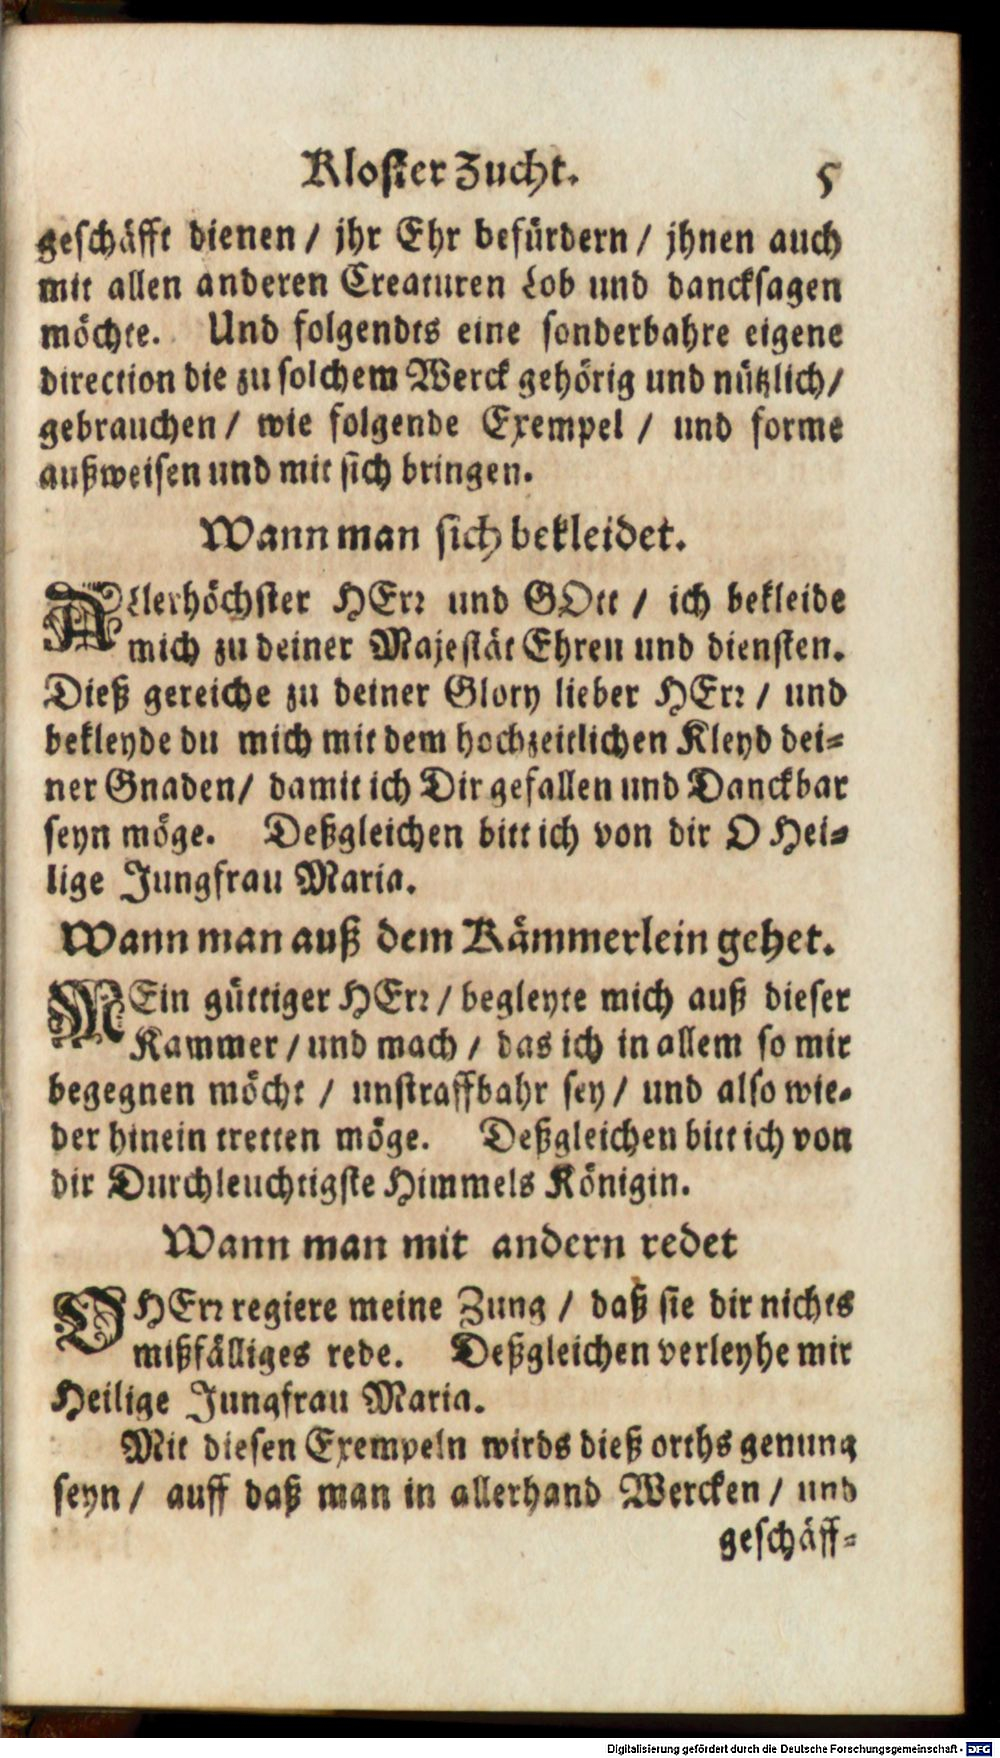 Kloster Zucht. 5
geschäfft dienen / jhr Ehr befürdern / jhnen auch
mit allen anderen Creaturen Lob und dancksagen
möchte. Und folgendts eine sonderbahre eigene
direction die zu solchem Werck gehörig und nützlich /
gebrauchen / wie folgende Exempel / und forme
außweisen und mit sich bringen.
Wann man sich bekleidet.
Allerhöchster HErr und GOtt / ich bekleide
mich zu deiner Majestät Ehren und diensten.
Dieß gereiche zu deiner Glory lieber HErr / und
bekleyde du mich mit dem hochzeitlichen Kleyd dei-
ner Gnaden / damit ich Dir gefallen und Danckbar
seyn möge. Deßgleichen bitt ich von dir O Hei-
lige Jungfrau Maria.
Wann man auß dem Kämmerlein gehet.
MEin güttiger HErr / begleyte mich auß dieser
Kammer / und mach / das ich in allem so mir
begegnen möcht / unstraffbahr sey / und also wie-
der hinein tretten möge. Deßgleichen bitt ich von
dir Durchleuchtigste Himmels Königin.
Wann man mit andern redet
O HErr regiere meine Zung / daß sie dir nichts
mißfälliges rede. Deßgleichen verleyhe mir
Heilige Jungfrau Maria.
Mit diesen Exempeln wirds dieß orths genung
seyn / auff daß man in allerhand Wercken / und
geschäff-
Digitalisierung gefördert durch die Deutsche Forschungsgemeinschaft - DFG